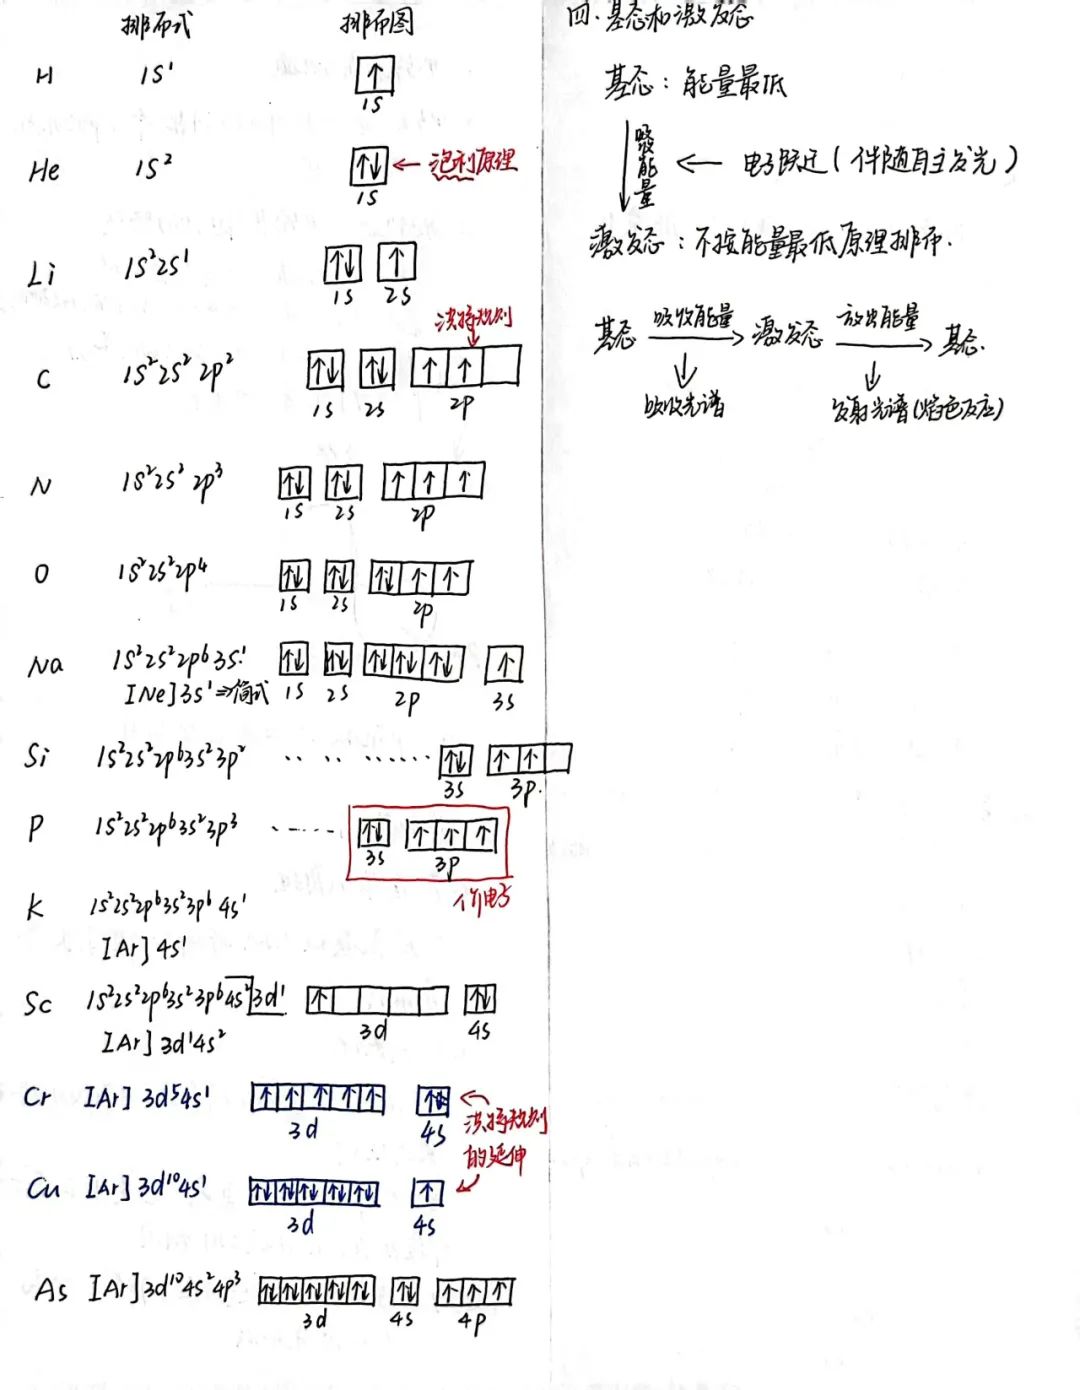 排布式 排布图
H 1S¹ ↑
1S
He 1S² ↑↓ ← 泡利原理
1S
Li 1S²2S¹ ↑↓ ↑
1S 2S
洪特规则
C 1S²2S²2p² ↑↓ ↑↓ ↑ ↑
1S 2S 2p
N 1S²2S²2p³ ↑↓ ↑↓ ↑ ↑ ↑
1S 2S 2p
O 1S²2S²2p⁴ ↑↓ ↑↓ ↑↓ ↑ ↑
1S 2S 2p
Na 1S²2S²2p⁶3S¹ ↑↓ ↑↓ ↑↓ ↑↓ ↑↓ ↑
[Ne]3S¹⇒简式 1S 2S 2p 3S
Si 1S²2S²2p⁶3S²3p² ‥ ‥ …… ↑↓ ↑ ↑
3S 3p.
P 1S²2S²2p⁶3S²3p³ …… ↑↓ ↑ ↑ ↑
3S 3p
价电子
K 1S²2S²2p⁶3S²3p⁶4S¹
[Ar]4S¹
Sc 1S²2S²2p⁶3S²3p⁶4S²3d¹ ↑ ↑↓
[Ar]3d¹4S² 3d 4S
Cr [Ar]3d⁵4S¹ ↑ ↑ ↑ ↑ ↑ ↑
3d 4S
洪特规则
的延伸
Cu [Ar]3d¹⁰4S¹ ↑↓ ↑↓ ↑↓ ↑↓ ↑↓ ↑
3d 4S
As [Ar]3d¹⁰4S²4p³ ↑↓ ↑↓ ↑↓ ↑↓ ↑↓ ↑↓ ↑ ↑ ↑
3d 4S 4p
四.基态和激发态
基态：能量最低
吸能量 ← 电子跃迁(伴随自主发光)
激发态：不按能量最低原理排布.
基态 吸收能量→ 激发态 放出能量→ 基态.
↓ ↓
吸收光谱 发射光谱(焰色反应)